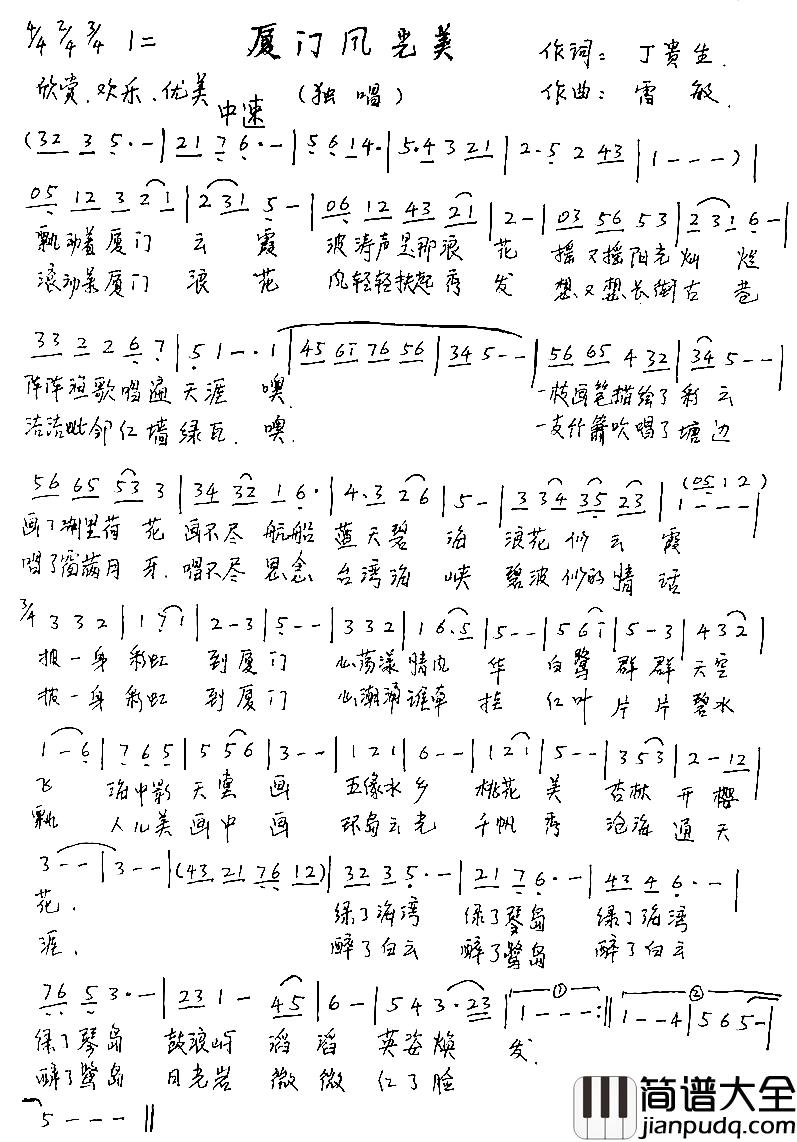 4/4 2/4 3/4 1= 厦门风光美 作词：丁贵生
欣赏、欢乐、优美 中速 （独唱） 作曲：雷敏
(32 3 5·-|21 7 6·-|56 14·|5·4 3 21|2·5 2 43|1---)|
05 12 3 2 1|2 31 5-|06 12 43 21|2-|03 56 53|2 31 6-|
飘动着厦门云霞 波涛声是那浪花 摇又摇阳光灿烂
滚动着厦门浪花 风轻轻扶起秀发 想又想长街古巷
33 2 2 6 7|5 1-··1|45 61 76 56|34 5--|56 65 4 32|34 5--|
阵阵渔歌唱遍天涯 噢 一枝画笔描绘了彩云
洁洁毗邻红墙绿瓦、噢、 一支竹箫吹唱了塘边
56 65 53 3|34 32 1 6·|4·3 26|5-|3 34 35 23|1---(05 12)|
画了湖里荷花 画不尽航船 蓝天碧海 浪花似云霞
唱了窗满月牙、唱不尽思念 台湾海峡 碧波似的情话
3/4 3 3 2|1 7 1|2-3|5--|3 3 2|1 6·5|5--|5 6 1|5-3|4 3 2|
披一身彩虹到厦门 心荡漾情风华 白鹭群群天空
披一身彩虹到厦门 心潮涌谁牵挂 红叶片片碧水
1-6|7 6 5|5 5 6|3--|1 2 1|6--|1 2 1|5--|3 5 3|2-12|
飞 海中影天堂画 五缘水乡桃花美 杏林开樱
飘 人儿美画中画 环岛云光千帆秀 沧海通天
3--|3--|(43 21 76 12)|32 3 5·-|21 7 6·-|43 4 6·-|
花. 绿了海湾 绿了琴岛 绿了海湾
涯. 醉了白云 醉了鹭岛 醉了白云
76 5 3·-|23 1-45|6-|5 4 3·23|① 1---:||② 1--4|5 6 5-|
绿了琴岛 鼓浪屿滔滔英姿焕发.
醉了鹭岛 日光岩微微红了脸
5---||
简谱大全
jianpudq.com